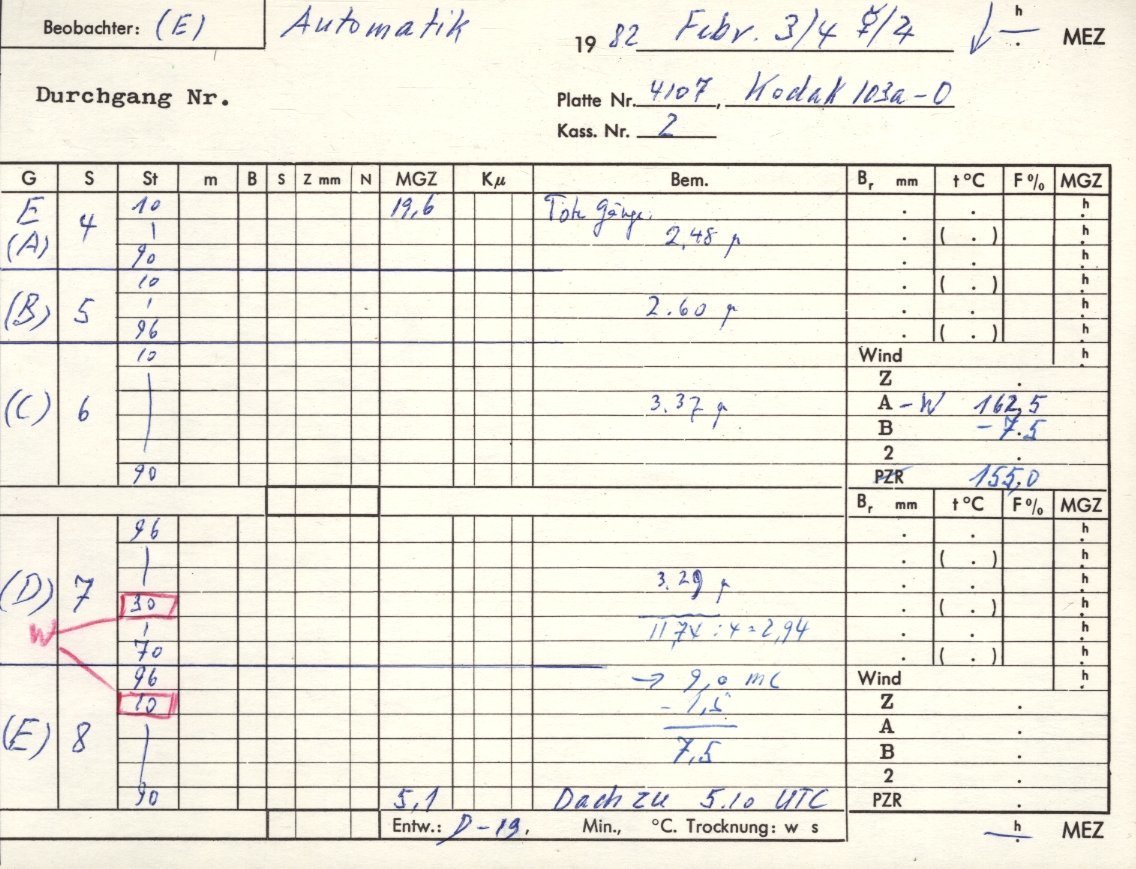 Beobachter: (E) Automatik 19 82 Febr. 3/4 ☿/♃ h . MEZ
Durchgang Nr. Platte Nr. 4107, Kodak 103a-O
Kass. Nr. 2
G S St m B S Z mm N MGZ Kμ Bem. Br mm t °C F % MGZ
E 10 19,6 Tote Gänge: . . h
(A) 4 | 2,48 µ . ( . ) h
90 . . h
10 . ( . ) h
(B) 5 | 2.60 µ . . h
96 . ( . ) h
10 Wind h
Z .
(C) 6 | 3.37 µ A - W 162,5
B - 7.5
2 .
90 PZR 155,0
Br mm t °C F % MGZ
96 . . h
| . ( . ) h
(D) 7 3.29 µ . . h
W 30 . ( . ) h
| 11,74 : 4 = 2,94 . . h
70 . ( . ) h
96 → 9,0 mc Wind h
10 - 1,5 Z .
A .
(E) 8 | 7,5 B .
2 .
90 5,1 Dach zu 5.10 UTC PZR .
Entw.: D-19, Min., °C. Trocknung: w s — h . MEZ